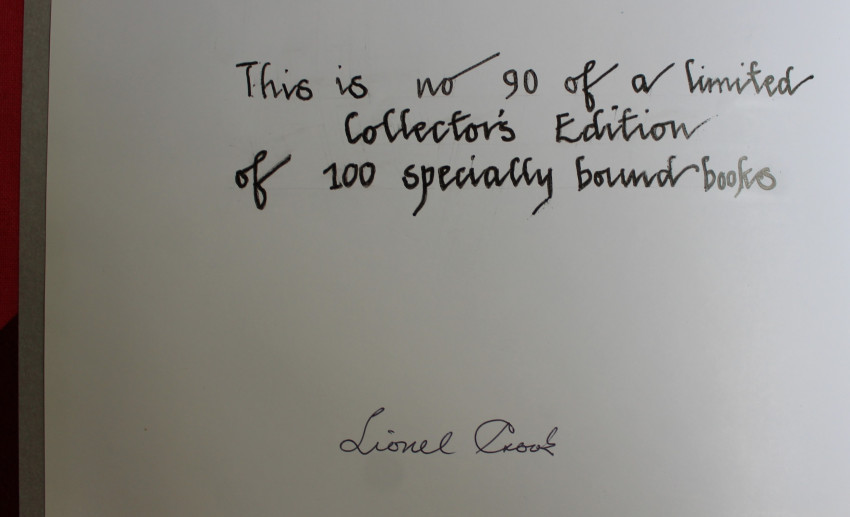 This is no 90 of a limited
Collector's Edition
of 100 specially bound books
Lionel Crook